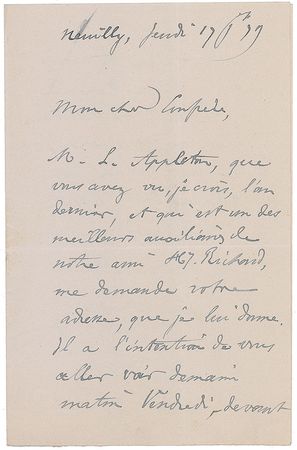 Neuilly, Jeudi 17 99
Mon cher Confrère,
M. L. Appleton, que
vous avez vu, je crois, l'an
dernier, et qui est un des
meilleurs auxiliaires de
notre ami H. Richard,
me demande votre
adresse, que je lui donne.
Il a l'intention de vous
aller voir demain
matin Vendredi, devant